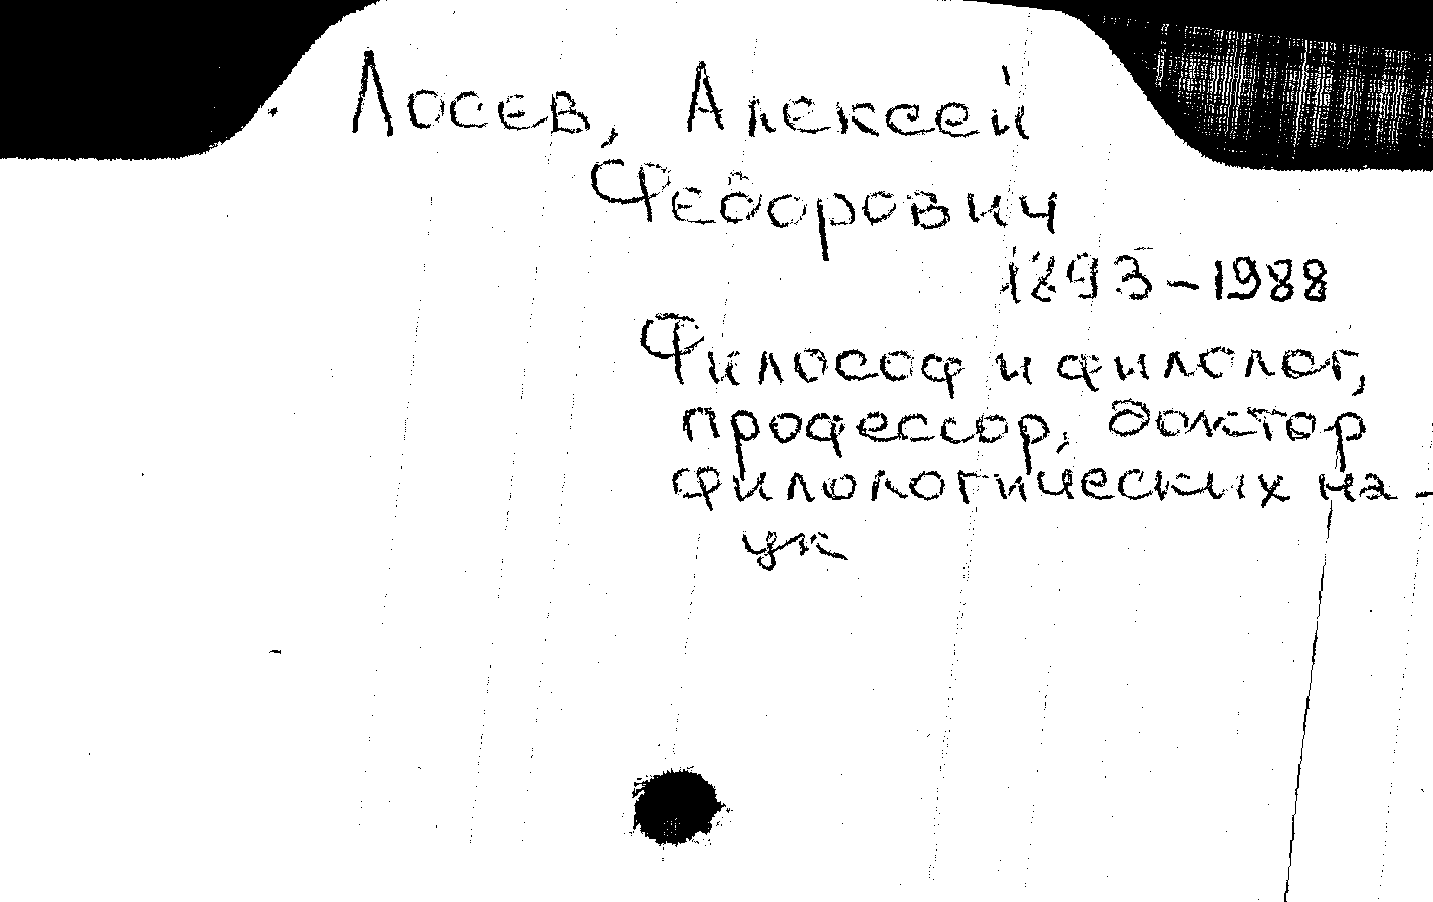 Лосев, Алексей
Федорович
1893-1988
Философ и филолог,
профессор, доктор
филологических на-
ук